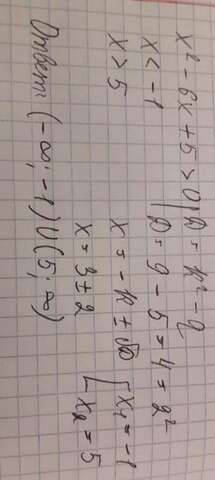 x² - 6x + 5 > 0 | D = k² - q
x < -1 D = 9 - 5 = 4 = 2²
x > 5 x = -k ± √D [x₁ = -1
x = 3 ± 2 x₂ = 5
Ответ: (-∞; -1) ∪ (5; ∞)